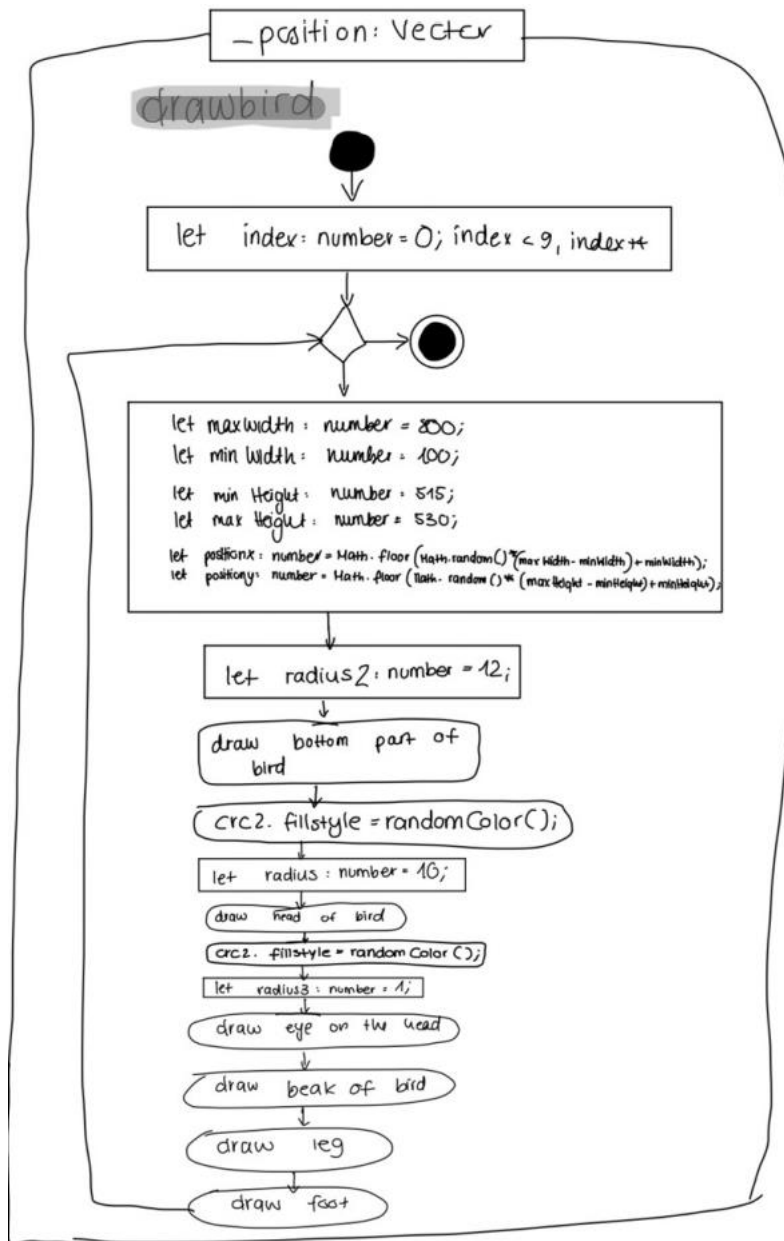 _position: Vector
drawbird
let index: number = 0; index < 9, index++
let maxWidth: number = 800;
let min Width: number = 100;
let min Height: number = 515;
let max Height: number = 530;
let positionx: number = Math.floor (Math.random() * (max Width - minWidth) + minWidth);
let positiony: number = Math.floor (Math.random() * (maxHeight - minHeight) + minHeight);
let radius2: number = 12;
draw bottom part of
bird
crc2. fillstyle = randomColor();
let radius: number = 10;
draw head of bird
crc2. fillstyle = random Color ();
let radius3: number = 1;
draw eye on the head
draw beak of bird
draw leg
draw foot